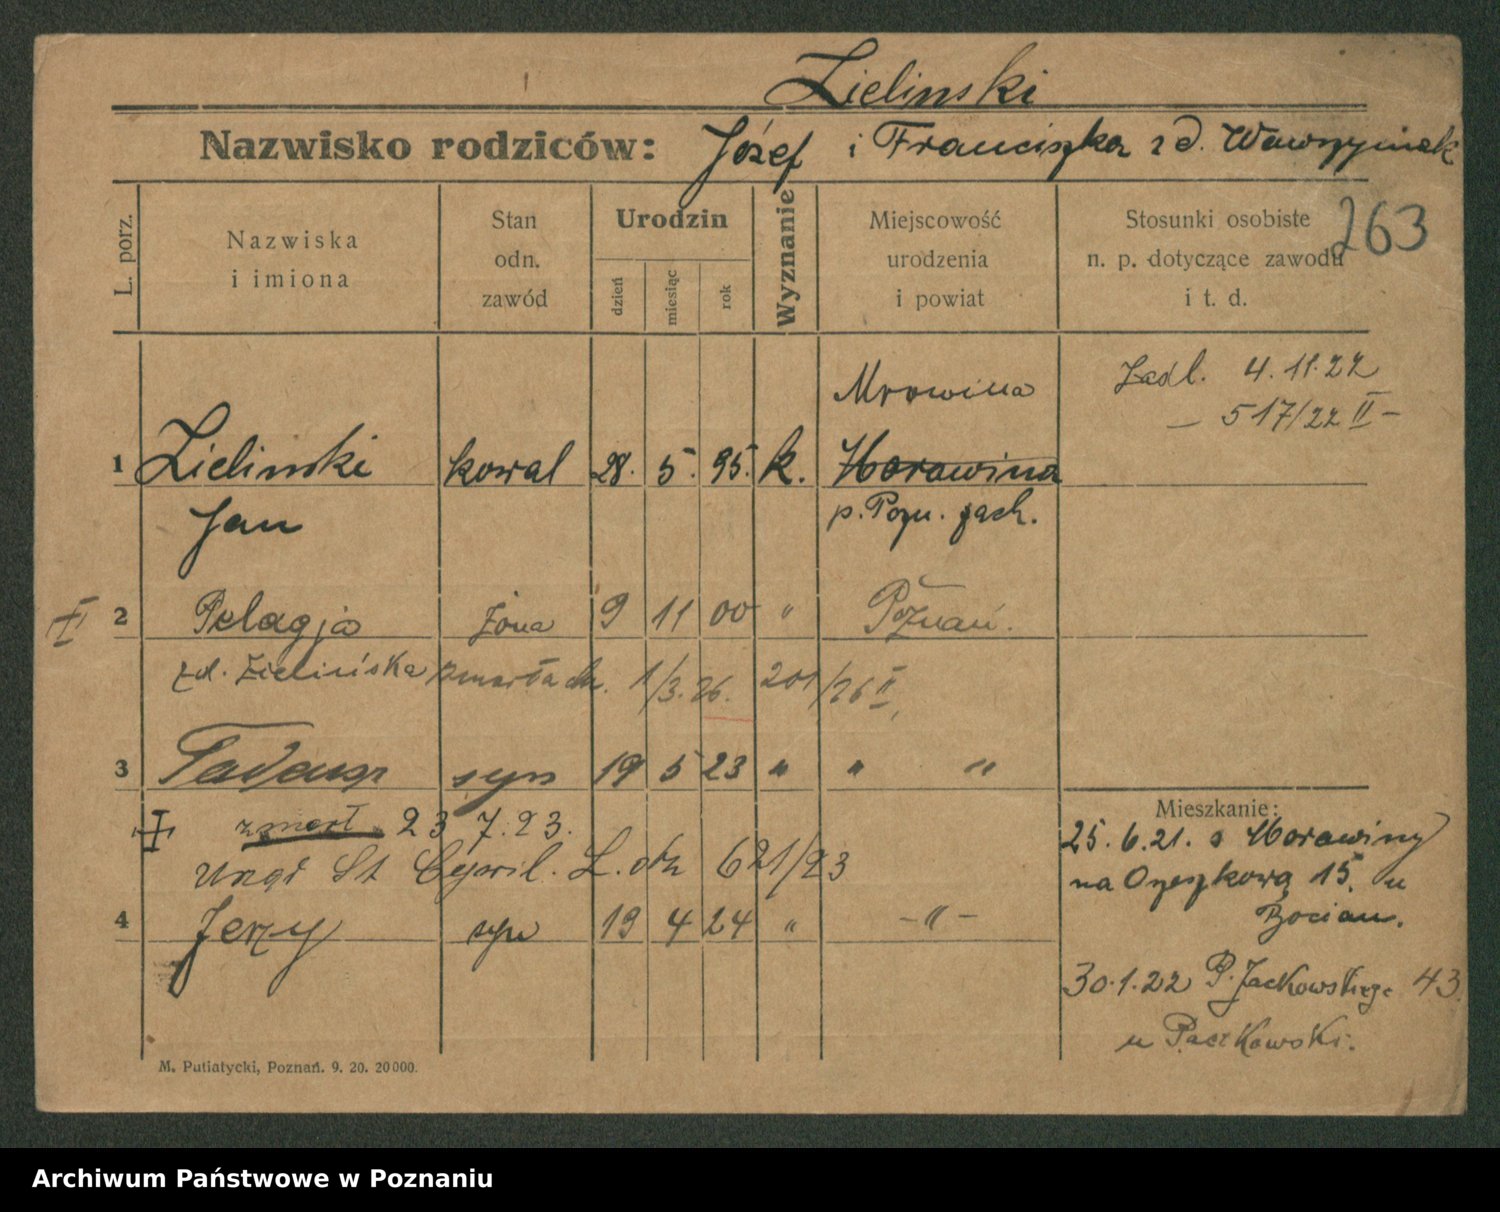 Zielinski
Nazwisko rodziców: Józef i Franciszka z d. Wawrzyniak
L. porz.
Nazwiska
i imiona
Stan
odn.
zawód
Urodzin
dzień
miesiąc
rok
Wyznanie
Miejscowość
urodzenia
i powiat
Stosunki osobiste
n. p. dotyczące zawodu
i t. d.
263
Mrowina
4. 11. 22
— 517/22 II —
1 Zielinski kowal 28. 5. 95. k. Morawina
Jan p. Pozn. zach.
2 Pelagja żona 9 11 00 " Poznań.
zd. Zielińska zmarła dn. 1/3. 26. 201/26 II
3 Tadeusz syn 19 5 23 " " "
zmarł 23 7. 23.
Urząd St Cywil. L. 621/23
4 Jerzy syn 19 4 24 " – " –
Mieszkanie:
25. 6. 21. z Morawiny
na Orzeszkową 15. u
Bocian.
30. 1. 22 P. Jackowskiego 43.
u Paczkowski.
M. Putiatycki, Poznań. 9. 20. 20000.
Archiwum Państwowe w Poznaniu